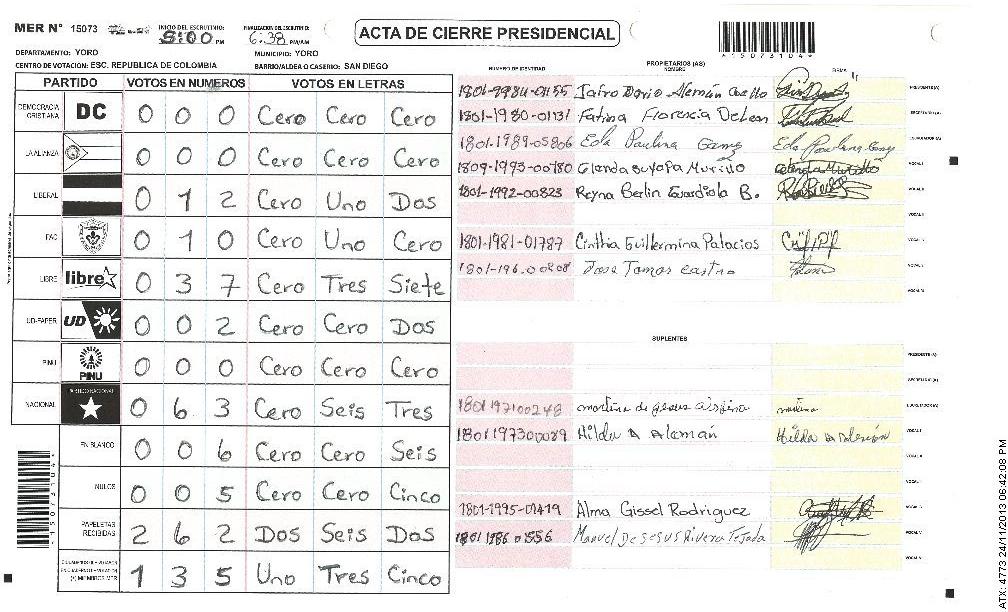 MER N° 15073 INICIO DEL ESCRUTINIO: 5:00 PM FINALIZACION DEL ESCRUTINIO: 6:38 PM/AM ACTA DE CIERRE PRESIDENCIAL
15073104
DEPARTAMENTO: YORO MUNICIPIO: YORO
CENTRO DE VOTACION: ESC. REPUBLICA DE COLOMBIA BARRIO/ALDEA O CASERIO: SAN DIEGO
PARTIDO VOTOS EN NUMEROS VOTOS EN LETRAS
DEMOCRACIA CRISTIANA DC 0 0 0 Cero Cero Cero
LA ALIANZA 0 0 0 Cero Cero Cero
LIBERAL 0 1 2 Cero Uno Dos
PAC 0 1 0 Cero Uno Cero
LIBRE libre 0 3 7 Cero Tres Siete
UD-FAPER UD 0 0 2 Cero Cero Dos
PINU PINU 0 0 0 Cero Cero Cero
NACIONAL PARTIDO NACIONAL 0 6 3 Cero Seis Tres
EN BLANCO 0 0 6 Cero Cero Seis
NULOS 0 0 5 Cero Cero Cinco
PAPELETAS RECIBIDAS 2 6 2 Dos Seis Dos
(+) MIEMBROS MER 1 3 5 Uno Tres Cinco
NUMERO DE IDENTIDAD PROPIETARIOS (AS) NOMBRE FIRMA
Jairo Dario Alemán PRESIDENTE(A)
1801-1980-01131 Fatima Florencia SECRETARIO(A)
1801-1989-05806 Eda Paulina ESCRUTADOR(A)
1809-1993-00780 Murillo VOCAL I
1801-1992-00823 Reyna Berlin Guardiola B. VOCAL II
VOCAL III
1801-1981-01787 Cinthia Guillermina Palacios VOCAL IV
Jose Tomas Castro VOCAL V
VOCAL VI
SUPLENTES
PRESIDENTE(A)
SECRETARIO(A)
1801197100248 martina de jesus ESCRUTADOR(A)
1801197300089 Hilda A Alemán Hilda VOCAL I
VOCAL II
VOCAL III
1801-1995-01419 Alma Gissel Rodriguez VOCAL IV
1801 1986 01556 Manuel De Jesus Rivera Tejada VOCAL V
VOCAL VI
*15073104*
ATX: 4773 24/11/2013 06:42:08 PM